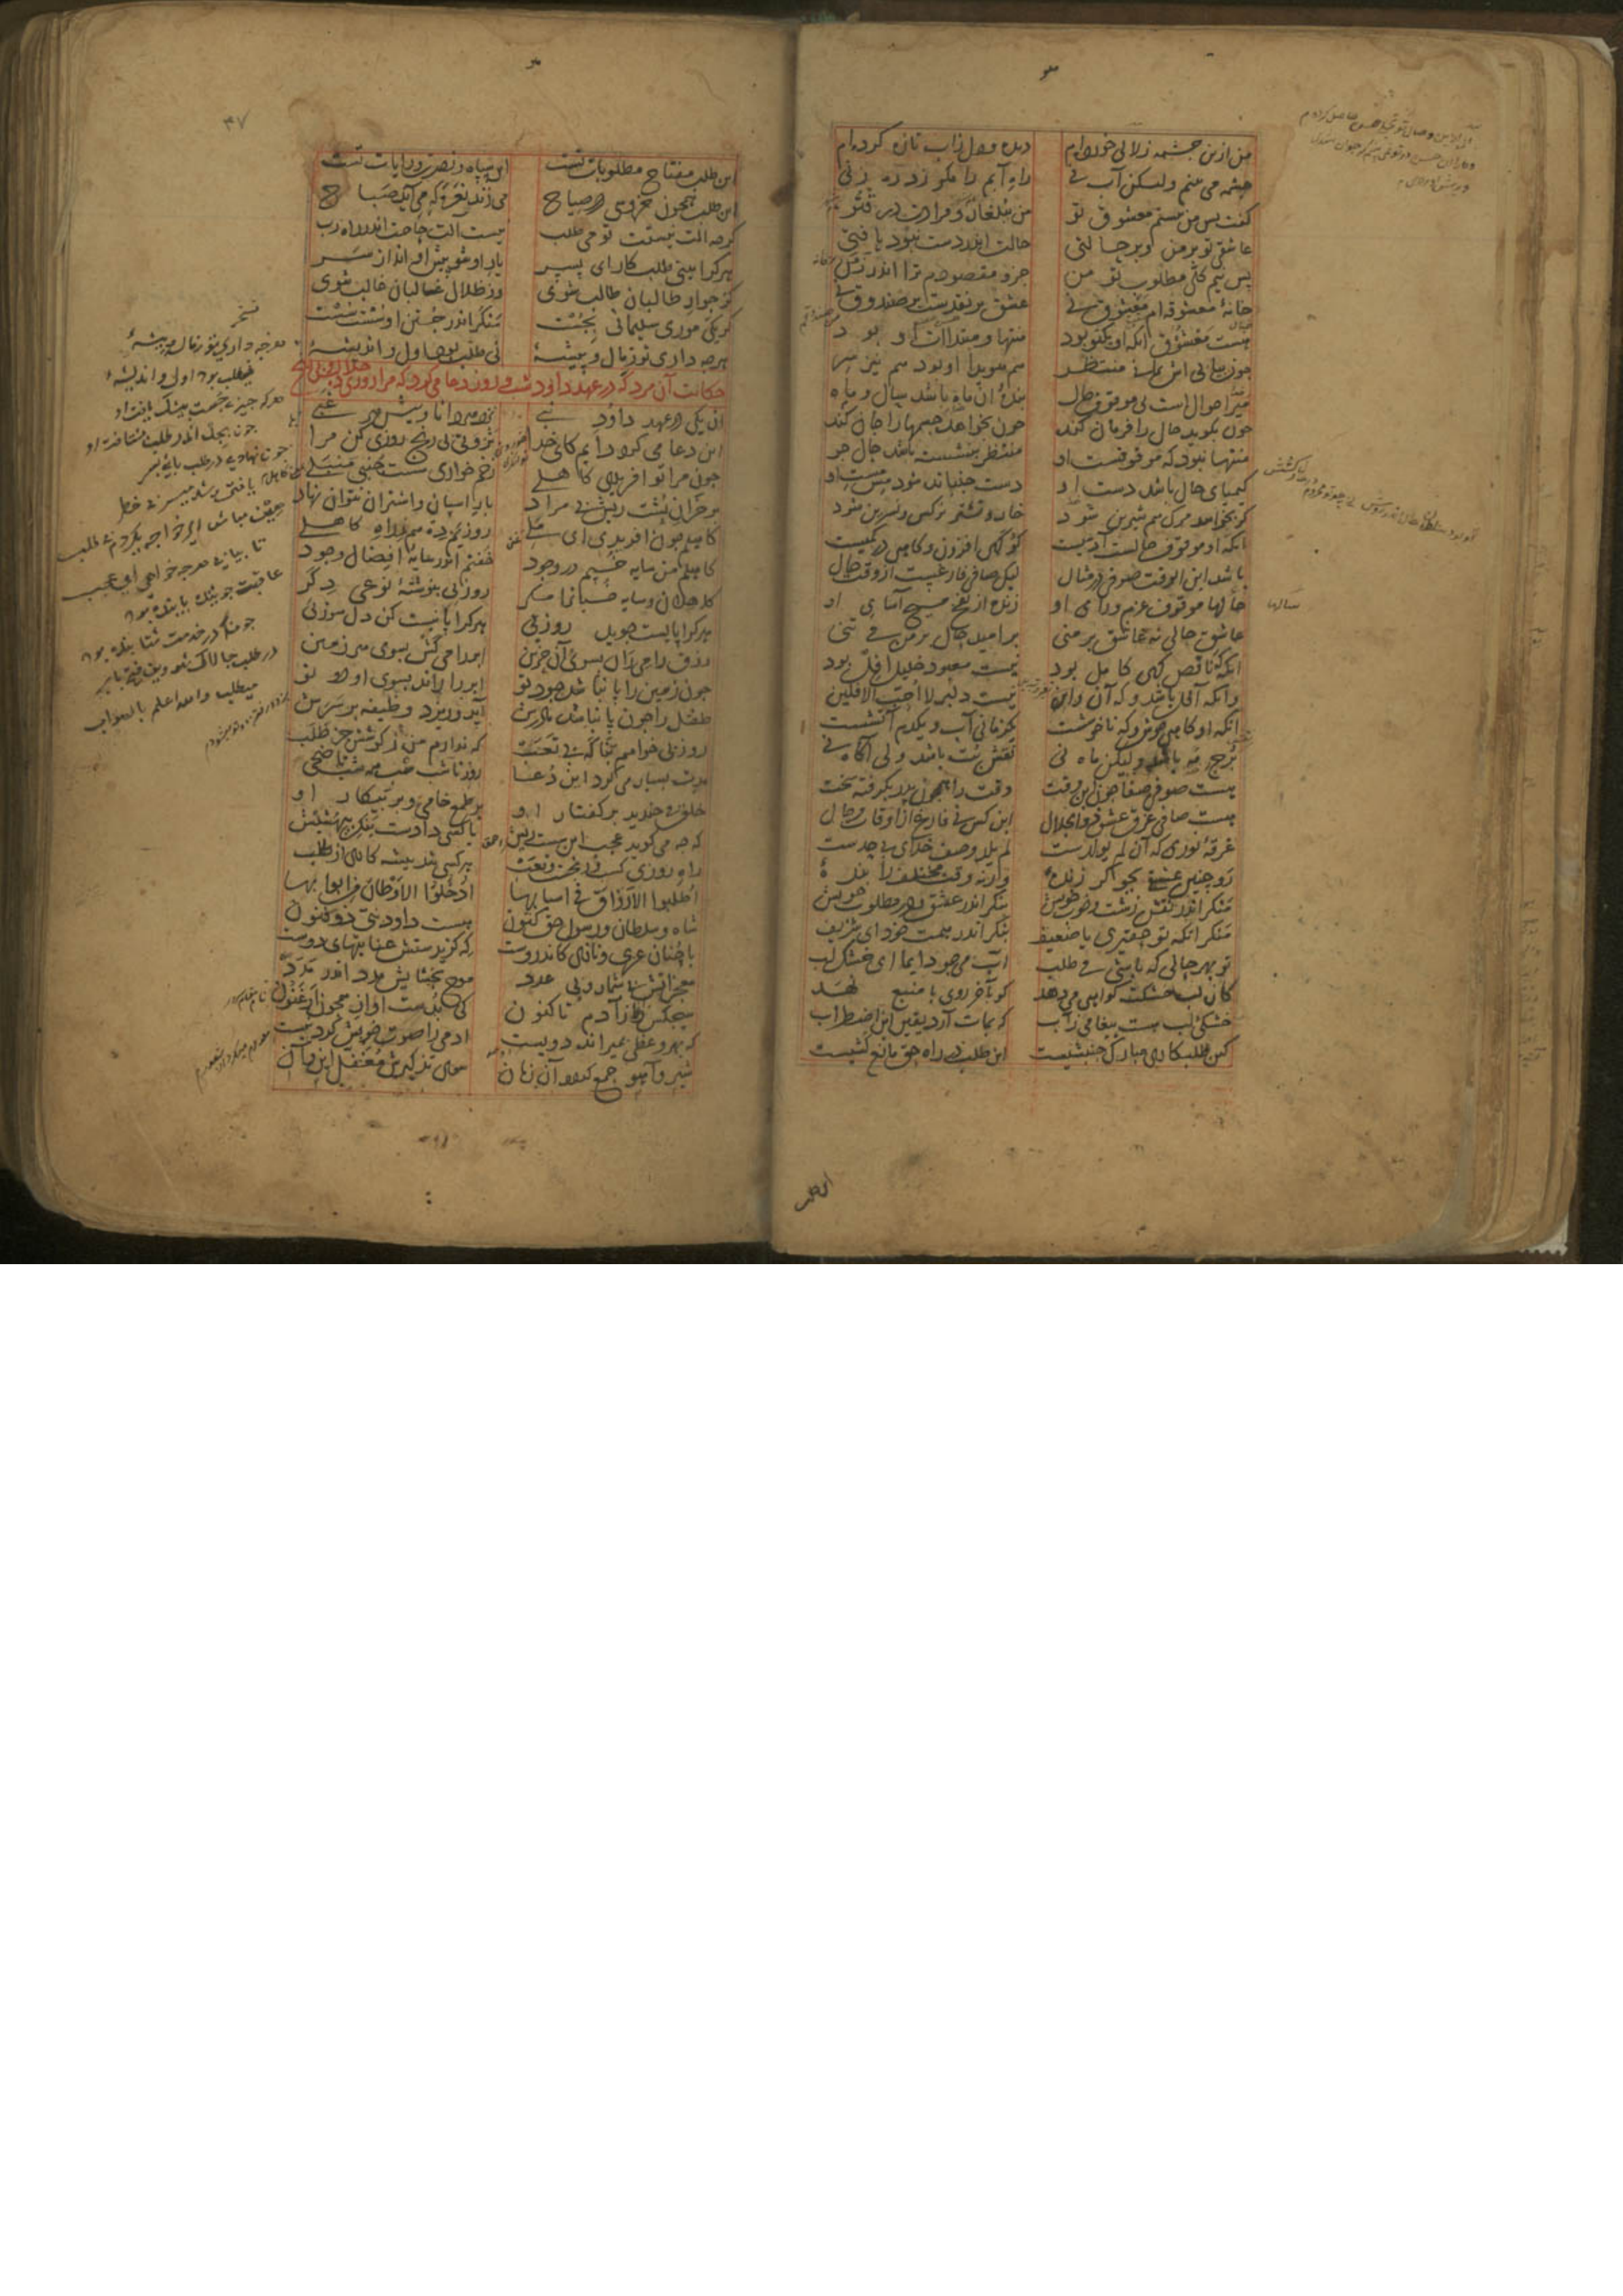 من ازین چشمه زلالی خورده‌ام دیده و دل زاب تازه کرده‌ام
چشمه می بینم ولیکن آب نی راه آبم را مگر زد ره زنی
گفت پس من نیستم معشوق تو من ببلغار و مرادت در قتو
عاشقی تو بر من و بر حالتی حالت اندر دست نبود یا فتی
پس نیم کلی مطلوب تو من جزو مقصودم ترا اندر زمن
خانهٔ معشوقه‌ام معشوق نی عشق بر نقدست بر صندوق نی
هست معشوق آنکه او یکتو بود منتها و مبتداات او بود
چون بیابی اش نمانی منتظر هم هویدا او بود هم نیز سر
میر احوال است نی موقوف حال بندهٔ آن ماه باشد سال و ماه
چون بگوید حال را فرمان کند چون بخواهد جسمها را جان کند
منتها نبود که موقوفست او منتظر بنشسته باشد حال جو
کیمیای حال باشد دست او دست جنباند شود مس مست او
گر بخواهد مرگ هم شیرین شود خار و نشتر نرگس و نسرین شود
آنکه او موقوف حالست آدمیست گو گهی افزون و گاهی در کمیست
باشد ابن الوقت صوفی در مثال لیک صافی فارغست از وقت حال
حالها موقوف عزم و رای او زنده از نفخ مسیح آسای او
عاشق حالی نه عاشق بر منی بر امید حال بر من می تنی
آنکه گه ناقص گهی کامل بود نیست معبود خلیل آفل بود
وآنکه آفل باشد و گه آن و این نیست دلبر لا احب الافلین
آنکه او گاهی خوش و گه ناخوشست یک زمانی آب و یکدم آتشست
برج مه باشد ولیکن ماه نی نقش بت باشد ولی آگاه نی
هست صوفی صفاجو ابن وقت وقت را همچون پدر بگرفته سخت
هست صافی غرق عشق ذوالجلال ابن کس نی فارغ از اوقات و حال
غرقهٔ نوری که آن لم یولدست لم یلد وصف خدای بی حدست
رو چنین عشقی بجو گر زندهٔ ورنه وقت مختلف را بندهٔ
منگر اندر نقش زشت و خوب خویش بنگر اندر عشق و در مطلوب خویش
منگر آنکه تو حقیری یا ضعیف بنگر اندر همت خود ای شریف
تو بهر حالی که باشی می طلب آب می جو دایما ای خشک لب
کان لب خشکت گواهی می دهد کو بآخر روی با منبع نهد
خشکی لب هست پیغامی زآب که بمات آرد یقین این اضطراب
کین طلب کاری مبارک جنبشیست این طلب در راه حق مانع کشیست
سالها
این طلب
۳۷
این طلب مفتاح مطلوبات تست این سپاه و نصرت و رایات تست
این طلب همچون خروسی در صیاح می زند نعره که می آید صباح
گرچه آلت نیستت تو می طلب نیست آلت حاجت اندر راه رب
هر کرا بینی طلب کار ای پسر یار او شو پیش او انداز سر
کز جوار طالبان طالب شوی وز ظلال غالبان غالب شوی
گر یکی موری سلیمانی بجست منگر اندر جستن او سست سست
هرچه داری تو زمال و پیشهٔ نی طلب بود اول و اندیشهٔ
حکایت آن مرد که در عهد داود شب و روز دعا می کرد که مرا روزی ده حلال بی رنج
آن یکی در عهد داود نبی نزد هر دانا و پیش هر غبی
این دعا می کرد دایم کای خدا ثروتی بی رنج روزی کن مرا
چون مرا تو آفریدی کاهلی زخم خواری سست جنبی منبلی
بر خران پشت ریش بی مراد بار اسپان و اشتران نتوان نهاد
کاهلم چون آفریدی ای ملی روزیم ده هم ز راه کاهلی
کاهلم من سایه خسپم در وجود خفتم اندر سایهٔ افضال وجود
کاهلان و سایه خسپانرا مگر روزیی بنوشتهٔ نوعی دگر
هر کرا پایست جوید روزیی هر کرا پا نیست کن دل سوزیی
رزق را می ران بسوی آن حزین ابر را می کش بسوی هر زمین
چون زمین را پا نباشد جود تو ابر را راند بسوی او دو تو
طفل را چون پا نباشد مادرش آید و ریزد وظیفه بر سرش
روزیی خواهم بناگه بی تعب که ندارم من زکوشش جز طلب
مدت بسیار می کرد این دعا روز تا شب شب همه شب تا ضحی
خلق می خندید بر گفتار او بر طمع خامی و بر پیکار او
که چه می گوید عجب این سست ریش یا کسی دادست بنگ بیهشیش
راه روزی کسب و رنجست و تعب هر کسی را پیشه کاری از طلب
اطلبوا الارزاق فی اسبابها ادخلوا الاوطان من ابوابها
شاه و سلطان و رسول حق کنون هست داود نبی ذو فنون
با چنان عزی و نازی کاندروست که گزیدستش عنایتهای دوست
معجزاتش بی شمار و بی عدد موج بخشایش مدد اندر مدد
هیچکس را زآدم تا کنون کی بدست آواز همچون ارغنون
که بهر وعظی بمیراند دویست آدمی را صوت خوبش کرد نیست
شیر و آهو جمع گردد آن زمان سوی تذکیرش مغفل این از آن
هرچه داری تو زمال و پیشهٔ
نی طلب بود اول و اندیشهٔ
هر که چیزی جست بیشک یافت او
چون بجد اندر طلب بشتافت او
چون نهادی در طلب پای پسر
یافتی و شد میسر بی خطر
حقیقت مباش ای خواجه یکدم بی طلب
تا بیابی هرچه خواهی ای عجب
عاقبت جوینده یابنده بود
چونکه در خدمت شتابنده بود
در طلب چالاک شو وین فتح باب
میطلب والله اعلم بالصواب